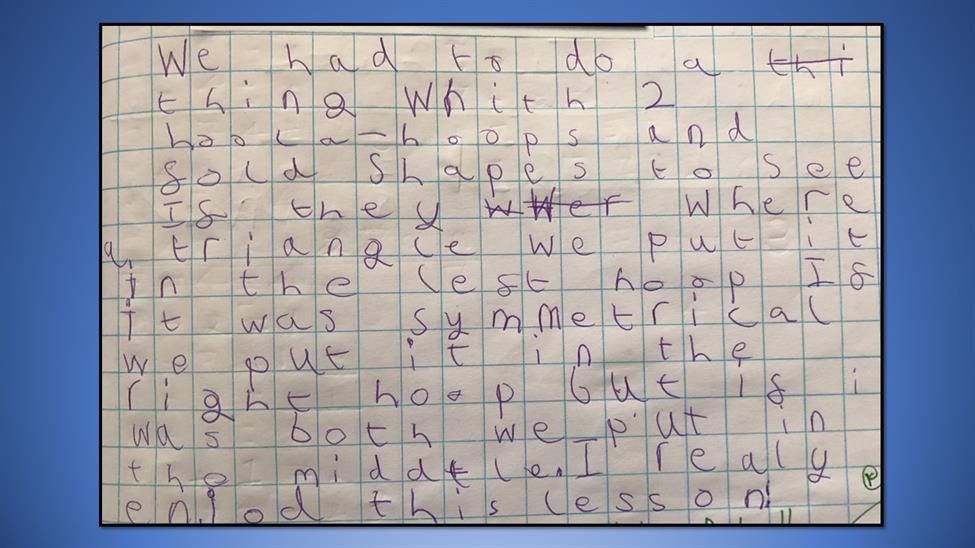 We had to do a thi
thing Whith 2
hoola-hoops and
fold Shapes to See
If they wWer where
a triangle we put it
in the left hoop If
it was symmetrical
we put it in the
right hoop but if i
was both we put in
the middtle. I realy
enjod this lesson!